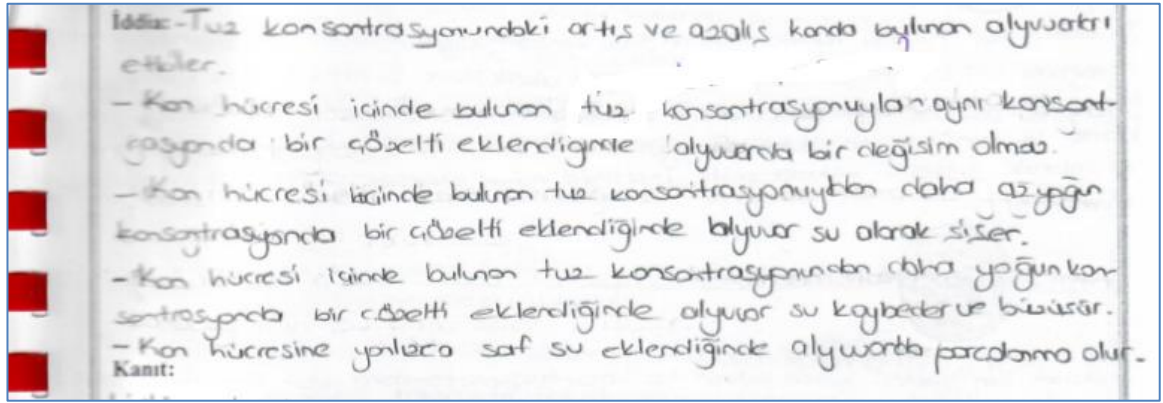 İddia: -Tuz konsantrasyonundaki artış ve azalış kanda bulunan alyuvarları
etkiler.
- Kan hücresi içinde bulunan tuz konsantrasyonuyla aynı konsant-
rasyonda bir çözelti eklendiğinde alyuvarda bir değişim olmaz.
- Kan hücresi içinde bulunan tuz konsantrasyonuytdan daha az yoğun
konsantrasyonda bir çözelti eklendiğinde alyuvar su alarak şişer.
- Kan hücresi içinde bulunan tuz konsantrasyonundan daha yoğun kon-
santrasyonda bir çözelti eklendiğinde alyuvar su kaybeder ve büzüşür.
- Kan hücresine yanlızca saf su eklendiğinde alyuvarda parçalanma olur.
Kanıt: